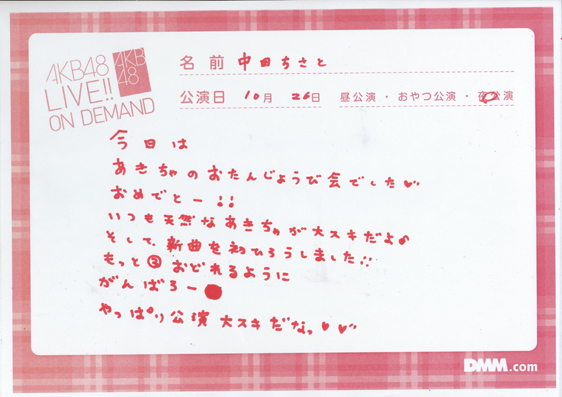 AKB48
LIVE!!
ON DEMAND
AKB
48
名前 中田ちさと
公演日 10月 26日 昼公演・おやつ公演・夜公演
今日は
あきちゃのおたんじょうび会でした♡♡
おめでとー!!
いつも天然なあきちゃが大スキだよ
そして、新曲を初ひろうしました!!
もっと② おどれるように
がんばろー
やっぱり公演大スキだなっ♥♡♡
DMM.com